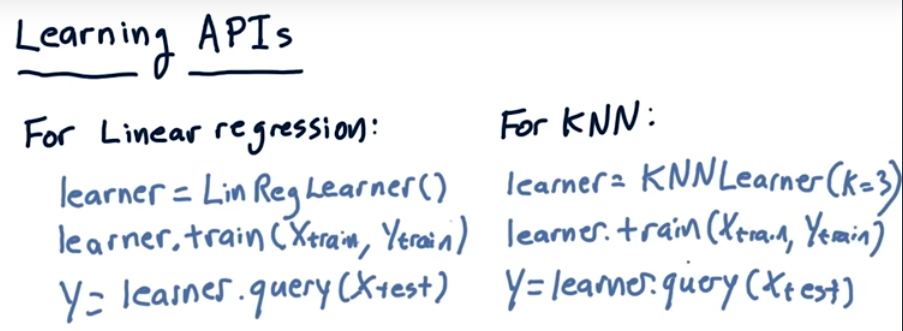 Learning APIs
For Linear regression:
learner = LinRegLearner()
learner.train(Xtrain, Ytrain)
Y = learner.query(Xtest)
For KNN:
learner = KNNLearner(k=3)
learner.train(Xtrain, Ytrain)
Y = learner.query(Xtest)